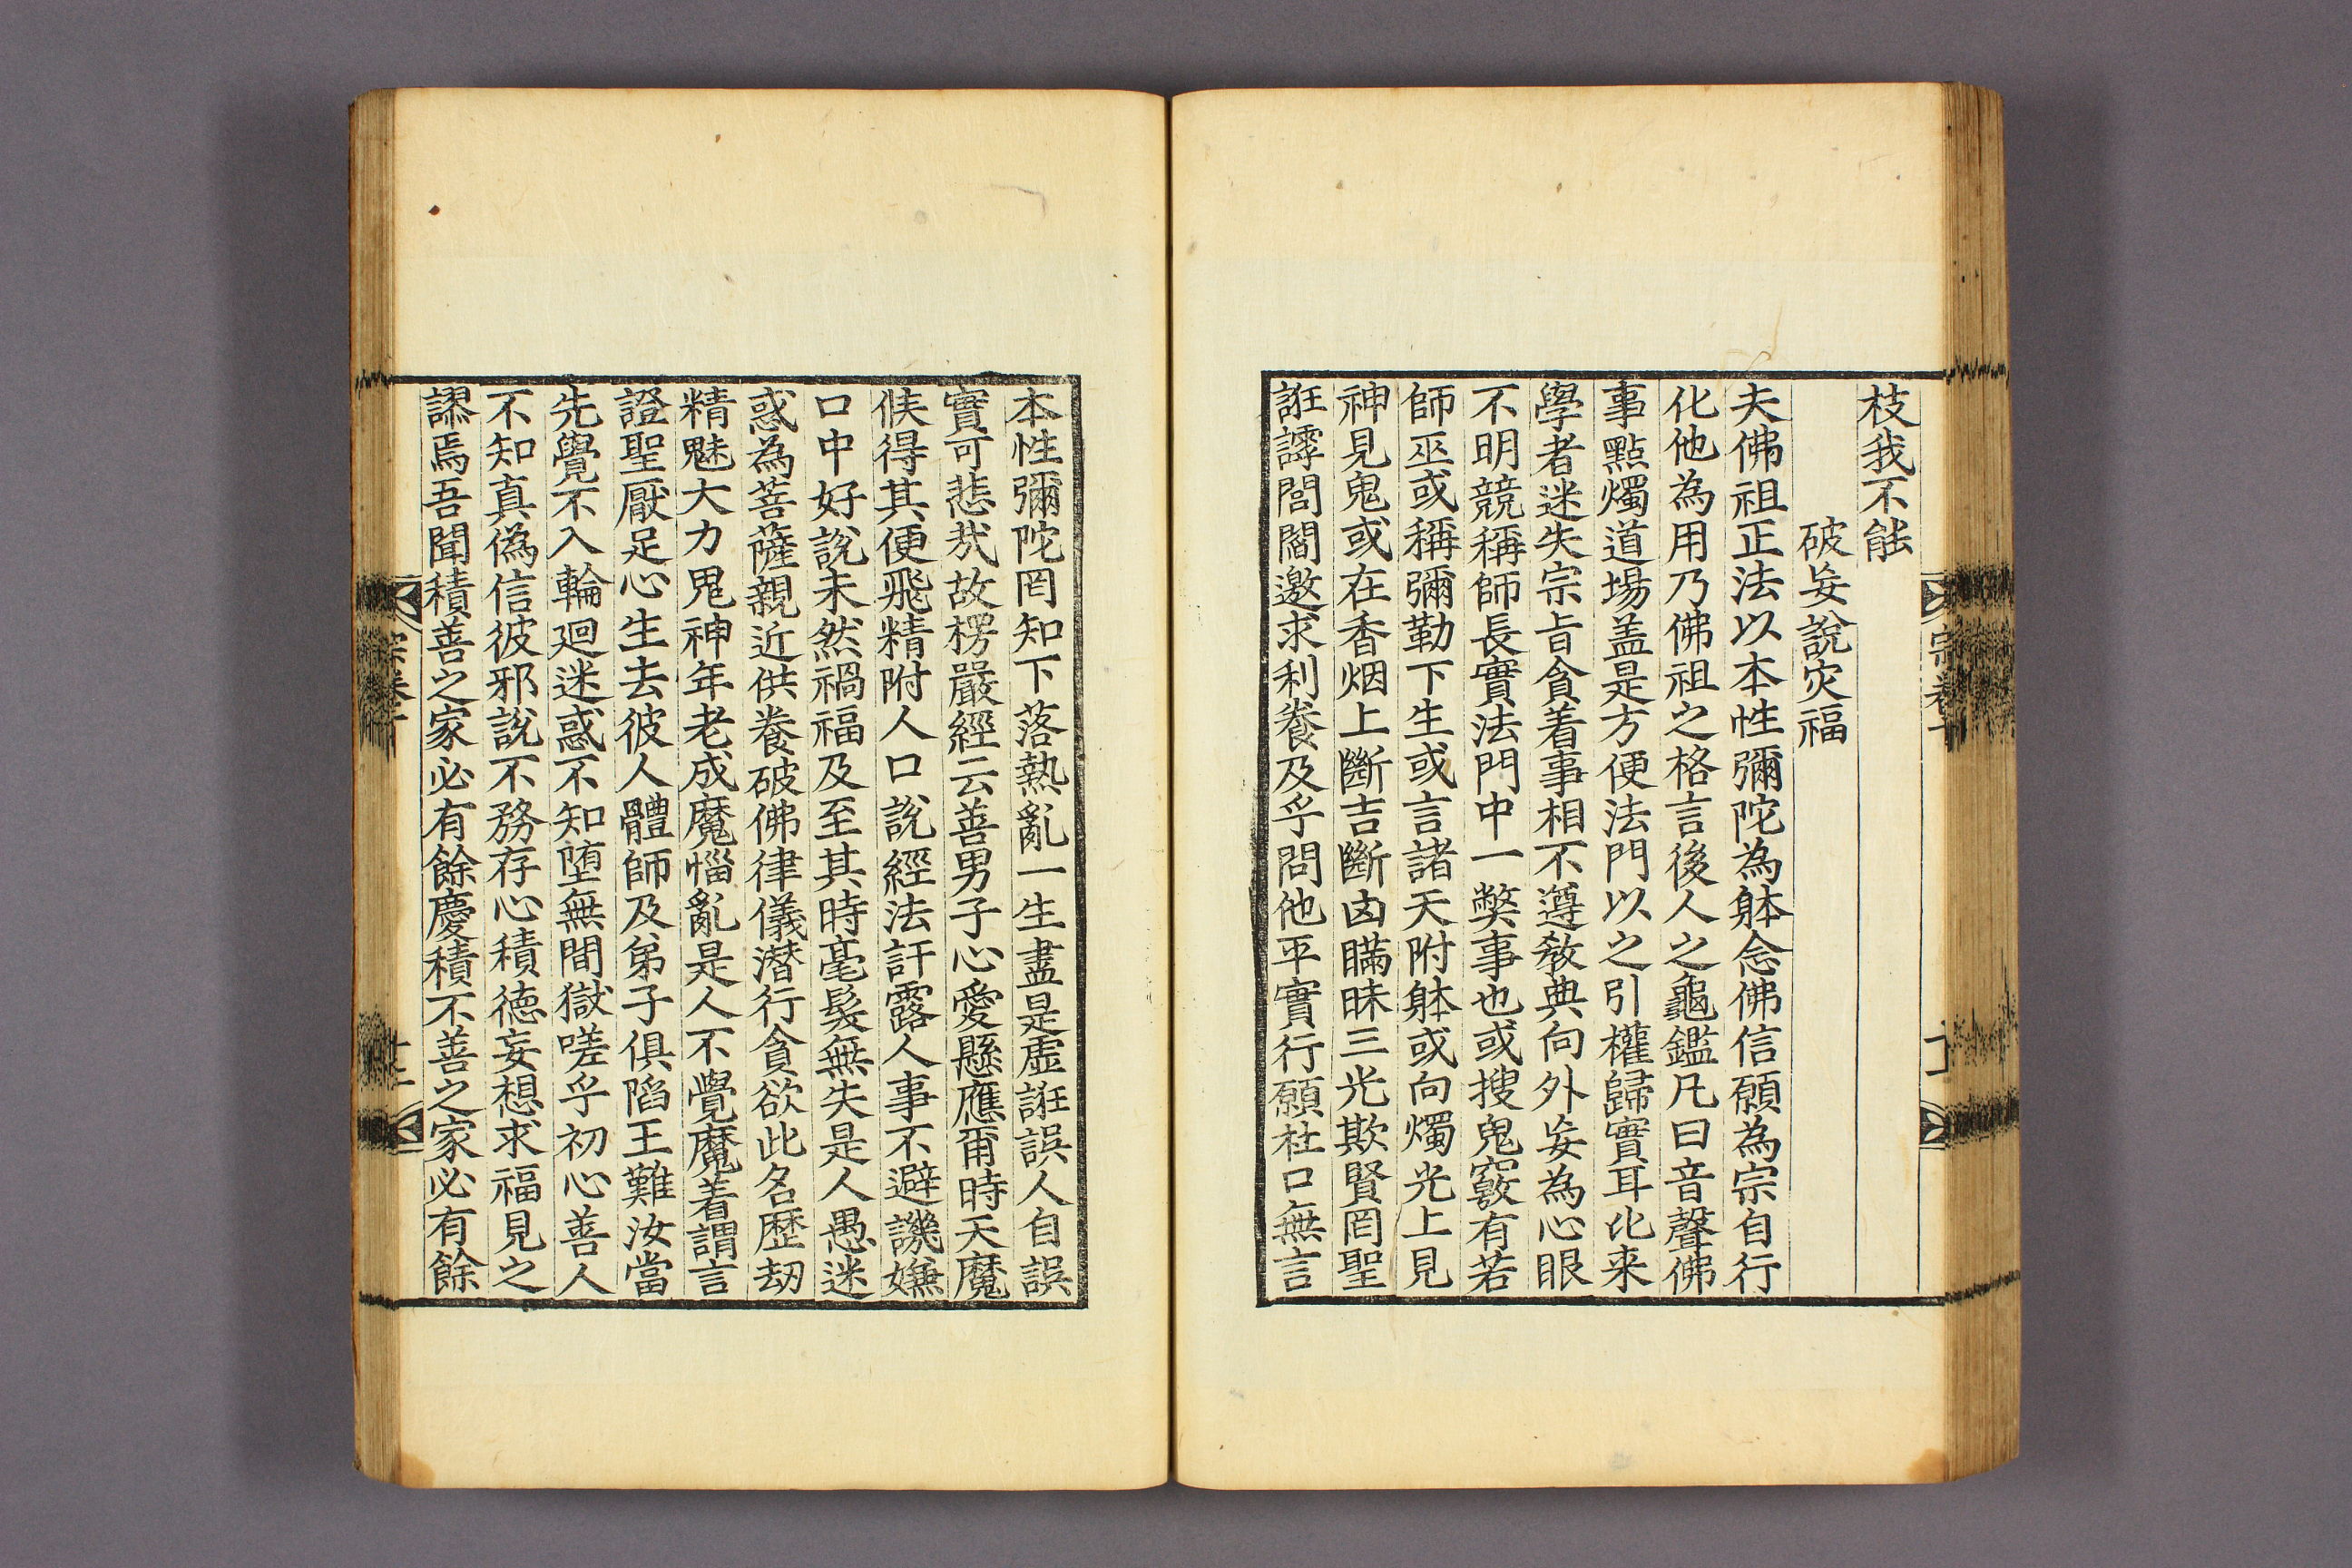 枝我不能
破妄說灾福
夫佛祖正法以本性彌陀為躰念佛信願為宗自行
化他為用乃佛祖之格言後人之龜鑑凡曰音聲佛
事點燭道場盖是方便法門以之引權歸實耳比来
學者迷失宗旨貪着事相不遵敎典向外妄為心眼
不明競稱師長實法門中一獘事也或搜鬼竅有若
師巫或稱彌勒下生或言諸天附躰或向燭光上見
神見鬼或在香烟上斷吉斷凶瞞昧三光欺賢罔聖
誑謼閭閻邀求利養及乎問他平實行願杜口無言
本性彌陀罔知下落熱亂一生盡是虛誑誤人自誤
實可悲㢤故楞嚴經云善男子心愛懸應爾時天魔
候得其便飛精附人口說經法訐露人事不避譏嫌
口中好說未然禍福及至其時毫髮無失是人愚迷
惑為菩薩親近供養破佛律儀潜行貪欲此名歷劫
精魅大力鬼神年老成魔惱亂是人不覺魔着謂言
證聖厭足心生去彼人體師及弟子俱陷王難汝當
先覺不入輪廻迷惑不知墮無間獄嗟乎初心善人
不知真偽信彼邪說不務存心積德妄想求福見之
謬焉吾聞積善之家必有餘慶積不善之家必有餘